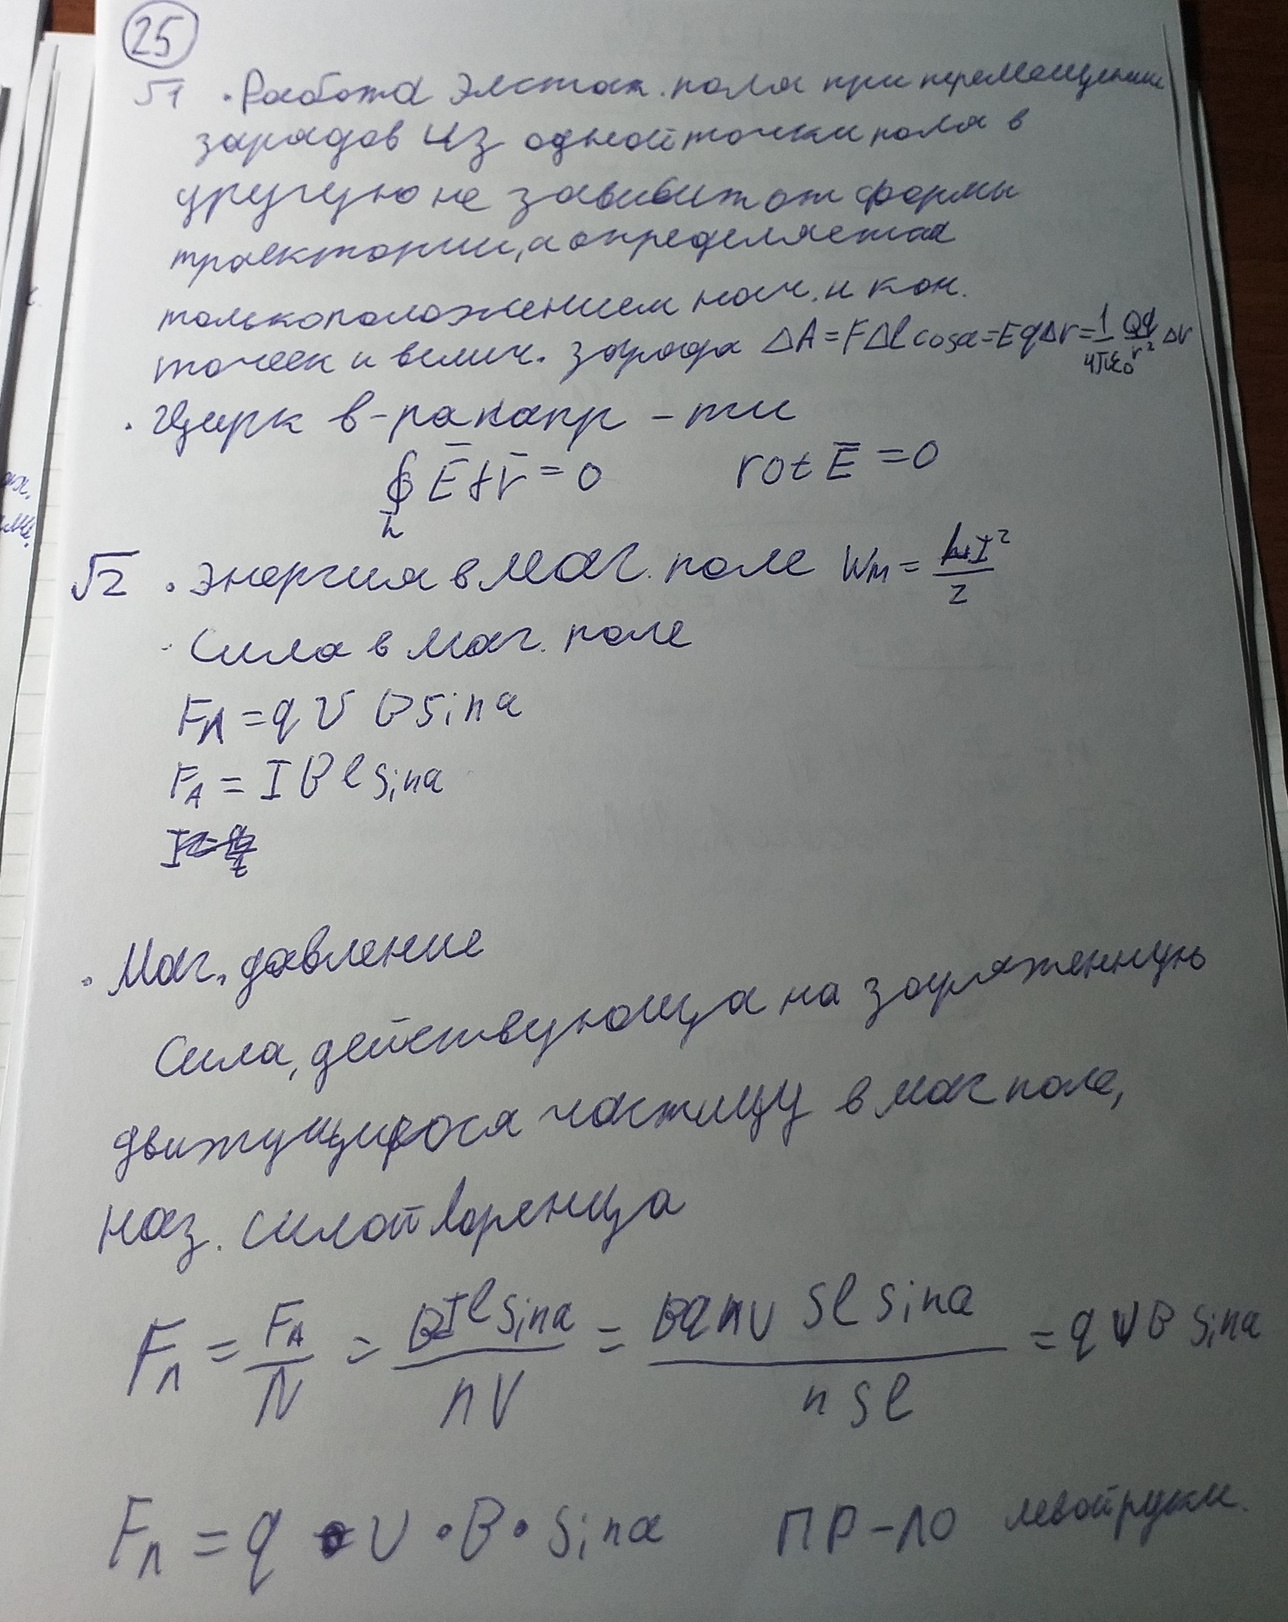 25
√1 · Работа элстат. поля при перемещении
зарядов из одной точки поля в
другую не зависит от формы
траектории, а определяется
только положением нач. и кон.
точек и велич. заряда ΔA = FΔl cosα = EqΔr = 1/4πε₀ Qq/r² Δr
· Цирк в-ра напр-ти
∮ E̅ dr̅ = 0 rot E̅ = 0
√2 · Энергия в маг. поле Wм = LI²/2
· Сила в маг. поле
Fл = q υ B sinα
FA = I B l sinα
· Маг. давление
Сила, действующая на заряженную
движущуюся частицу в маг поле,
наз. силой Лоренца
Fл = FA/N = BIl sinα/nV = Bqnυ Sl sinα/n Sl = qυB sinα
Fл = q · υ · B · sinα ПР-ЛО левой руки.